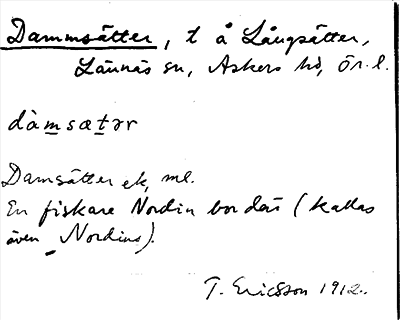 Dammsätter, t å Långsätter,
Lännäs sn, Askers hd, Ör. l.
dàmsætər
Damsätter ek, ml.
En fiskare Nordin bor där (kallas
även Nordins).
T. Ericsson 1912.